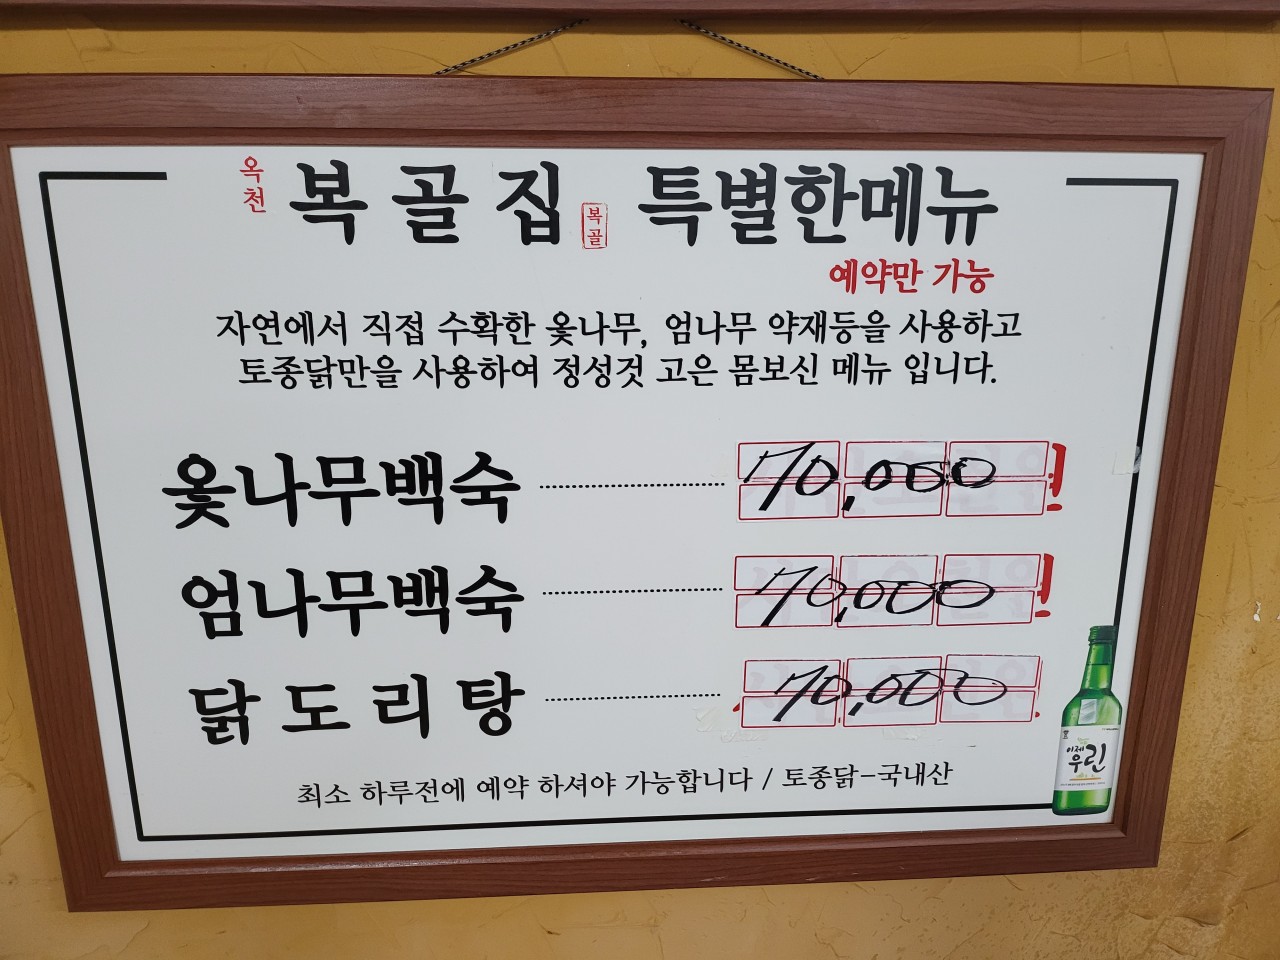 옥천 복골집 복골 특별한메뉴
예약만 가능
자연에서 직접 수확한 옻나무, 엄나무 약재등을 사용하고
토종닭만을 사용하여 정성껏 고은 몸보신 메뉴 입니다.
옻나무백숙 70,000 원
엄나무백숙 70,000 원
닭도리탕 70,000
최소 하루전에 예약 하셔야 가능합니다 / 토종닭-국내산
이제
우린